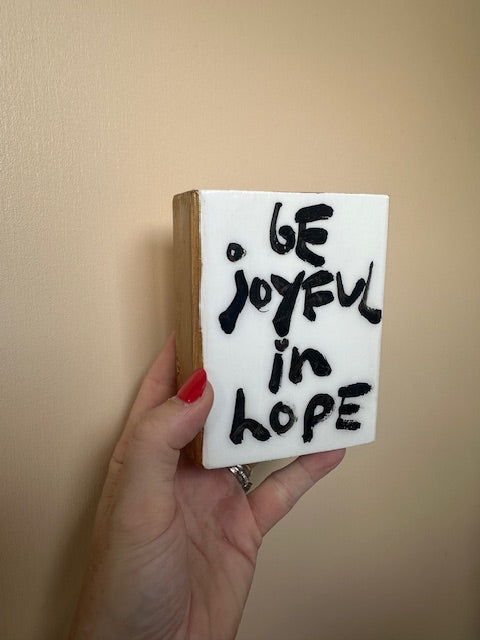 bE
joyFUL
in
hOPE